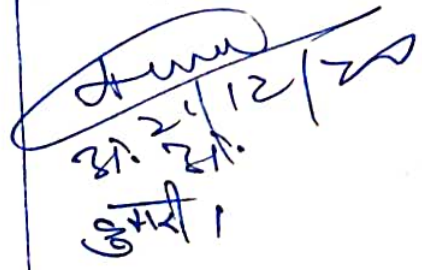 21/12/20
अं. अं.
डुमरी।